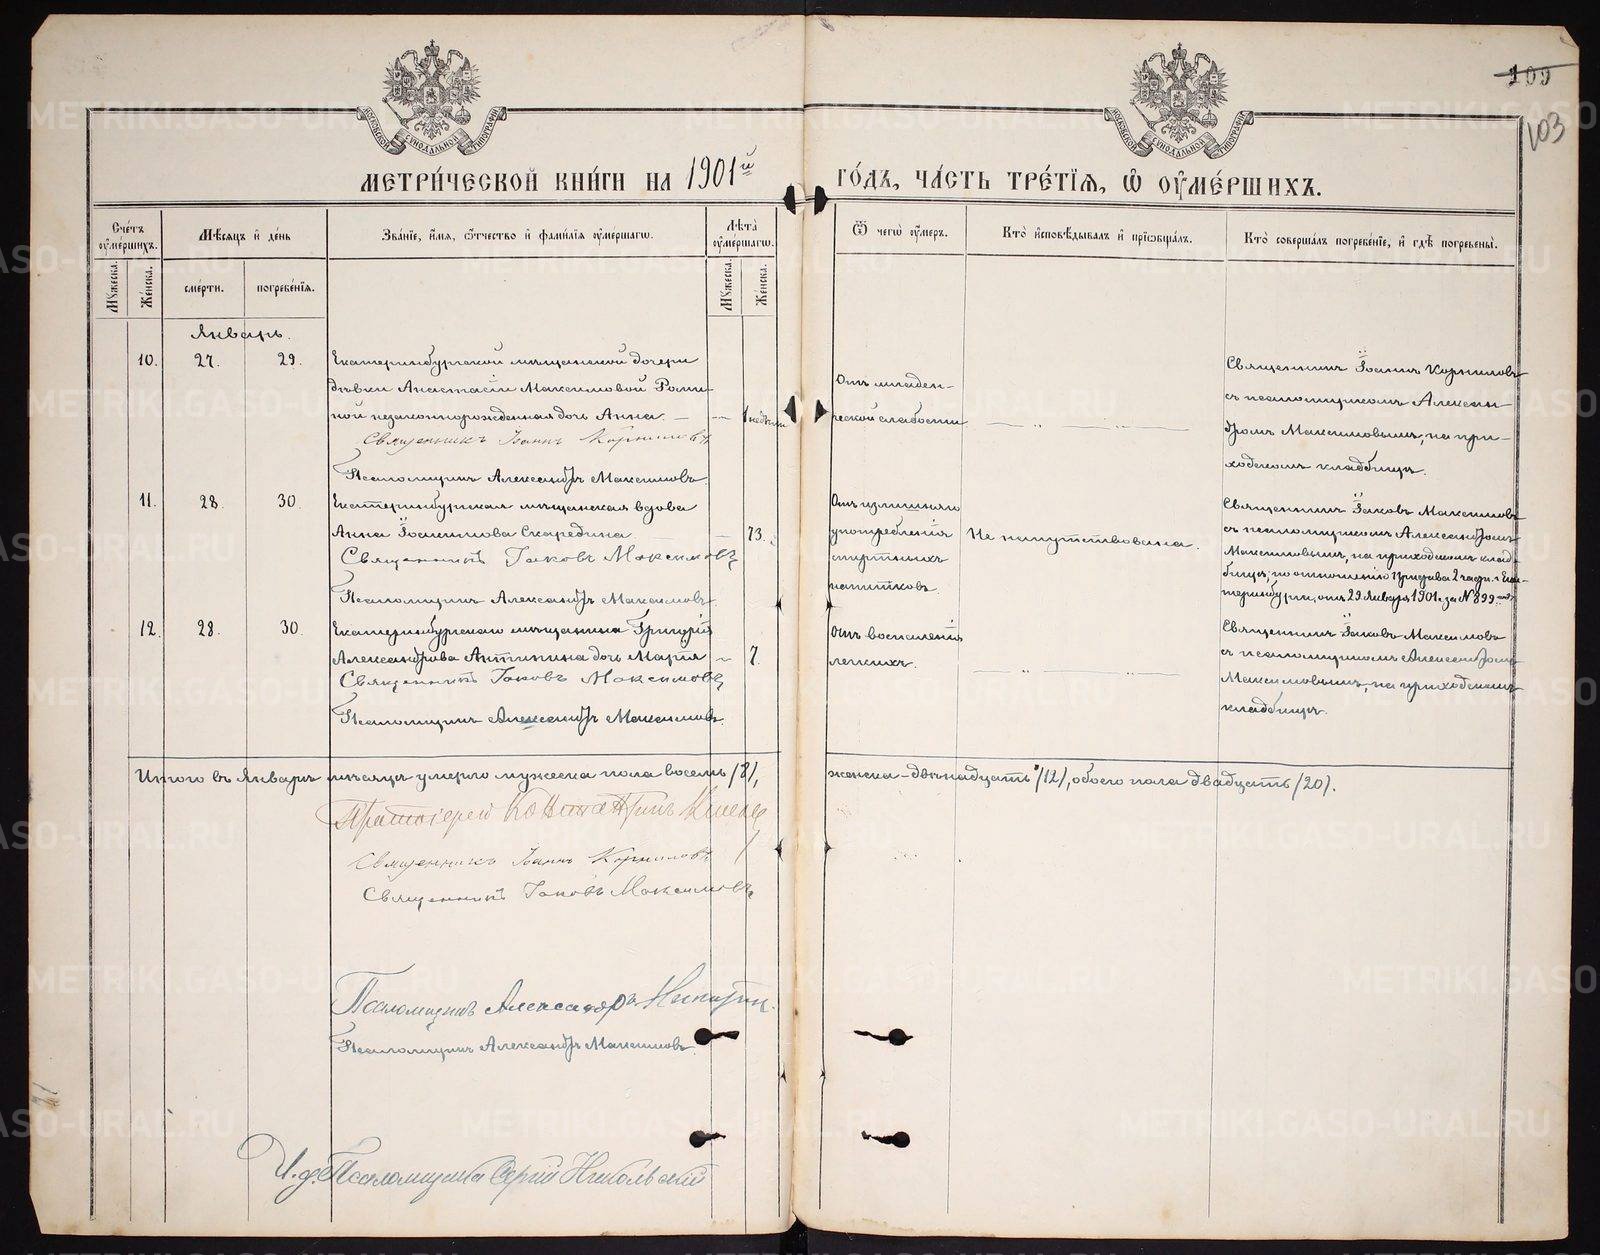 109
103
МОСКОВСКОЙ СУНОДАЛЬНОЙ ТИПОГРАФІИ
МОСКОВСКОЙ СУНОДАЛЬНОЙ ТИПОГРАФІИ
МЕТРИ́ЧЕСКОЙ КНИ́ГИ НА 1901й ГО́ДЪ, ЧА́СТЬ ТРЕ́ТІЯ, Ѡ ОУ҆МЕ́РШИХЪ.
Сче́тъ оу҆ме́ршихъ.
Му́жеска.
Же́нска.
Мѣ́сяцъ и҆ де́нь
сме́рти.
погребе́нїѧ.
Зва́нїе, и҆́мѧ, ѻ҆́тчество и҆ фами́лїѧ оу҆ме́ршагѡ.
Лѣта̀ оу҆ме́ршагѡ.
Му́жеска.
Же́нска.
Ѿ чегѡ̀ оу҆́меръ.
Кто̀ и҆сповѣ́дывалъ и҆ прїѡбща́лъ.
Кто̀ соверша́лъ погребе́нїе, и҆ гдѣ̀ погребены̀.
Январь.
10. 27. 29.
Екатеринбургской мѣщанской дочери
дѣвки Анастасіи Максимовой Роми-
ной незаконнорожденная дочь Анна —
Священникъ Іоаннъ Корниловъ
Псаломщикъ Александръ Максимовъ
1 недѣли
Отъ младен-
ческой слабости
Священникъ Іоаннъ Корниловъ
съ псаломщикомъ Алексан-
дромъ Максимовымъ, на при-
ходскомъ кладбищѣ.
11. 28. 30.
Екатеринбургская мѣщанская вдова
Анна Іоакимова Скаредина
Священникъ Іаковъ Максимовъ
Псаломщикъ Александръ Максимовъ.
73.
Отъ излишняго
употребленія
спиртныхъ
напитковъ.
Не напутствована.
Священникъ Іаковъ Максимовъ
съ псаломщикомъ Александромъ
Максимовымъ, на приходскомъ клад-
бищѣ, по отношенію Пристава 2 части г. Ека-
теринбурга, отъ 29 Января 1901 г. за № 899.
12. 28. 30.
Екатеринбургскаго мѣщанина Григорія
Александрова Антипина дочь Марія
Священникъ Іаковъ Максимовъ
Псаломщикъ Александръ Максимовъ.
7.
Отъ воспаленія
легкихъ.
Священникъ Іаковъ Максимовъ
съ псаломщикомъ Александромъ
Максимовымъ, на приходскомъ
кладбищѣ.
Итого въ Январѣ мѣсяцѣ умерло мужеска пола восемь /8/, женска – двѣнадцать /12/, обоего пола двадцать /20/.
Протоіерей Константинъ
Священникъ Іоаннъ Корниловъ
Священникъ Іаковъ Максимовъ
Псаломщикъ Александръ Никитин.
Псаломщикъ Александръ Максимовъ.
И. д. Псаломщика Сергій Никольскій
METRIKI.GASO-URAL.RU